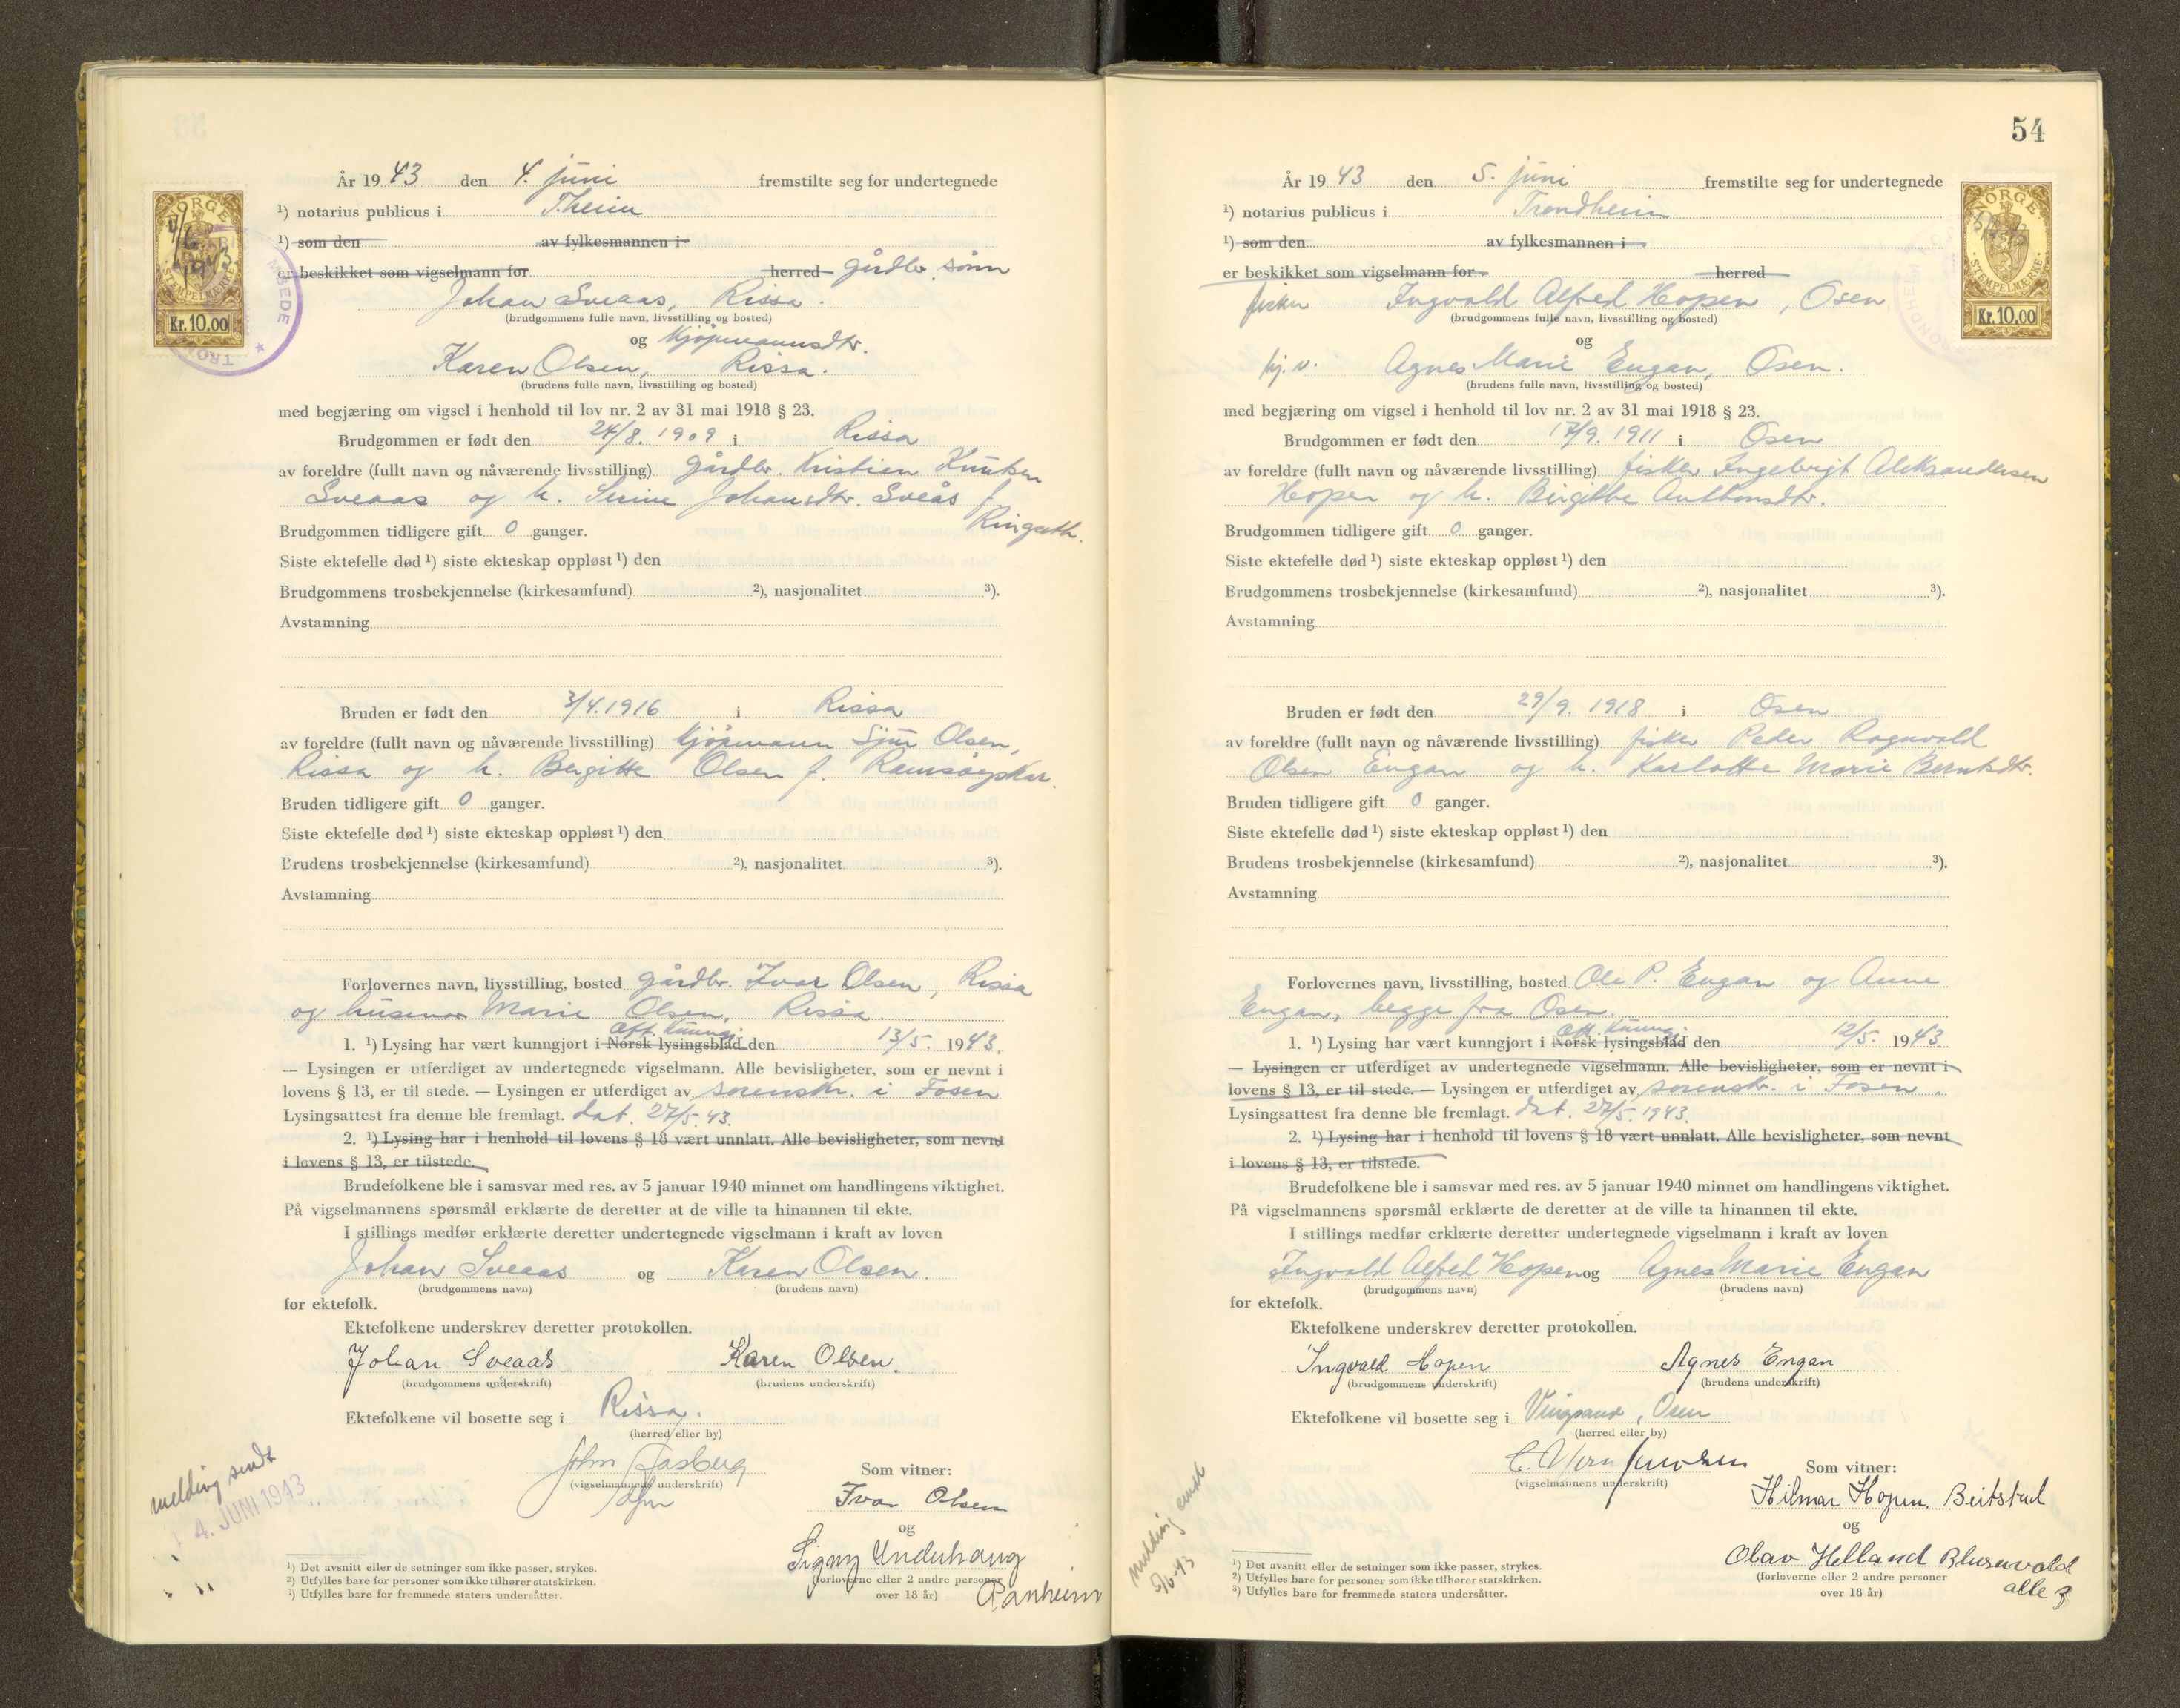 År 1943 den 4. juni fremstilte seg for undertegnede
¹) notarius publicus i T.heim
¹) som den av fylkesmannen i
er beskikket som vigselmann for herred gårdbr. sønn
Johan Sveaas, Rissa.
(brudgommens fulle navn, livsstilling og bosted)
og kjøpmannsdtr.
Karen Olsen, Rissa.
(brudens fulle navn, livsstilling og bosted)
med begjæring om vigsel i henhold til lov nr. 2 av 31 mai 1918 § 23.
Brudgommen er født den 24/8. 1909 i Rissa
av foreldre (fullt navn og nåværende livsstilling) gårdbr. Kristian Knutsen
Sveaas og h. Serine Johansdtr. Sveås f.
Brudgommen tidligere gift 0 ganger.
Siste ektefelle død ¹) siste ekteskap oppløst ¹) den
Brudgommens trosbekjennelse (kirkesamfund) ²), nasjonalitet ³).
Avstamning
Bruden er født den 3/4. 1916 i Rissa
av foreldre (fullt navn og nåværende livsstilling) kjøpmann Olsen,
Rissa og h. Bergitte Olsen f.
Bruden tidligere gift 0 ganger.
Siste ektefelle død ¹) siste ekteskap oppløst ¹) den
Brudens trosbekjennelse (kirkesamfund) ²), nasjonalitet ³).
Avstamning
Forlovernes navn, livsstilling, bosted gårdbr. Ivar Olsen, Rissa
og husmor Marie Olsen, Rissa.
Off. kunngj.
1. ¹) Lysing har vært kunngjort i Norsk lysingsblad den 13/5. 1943.
— Lysingen er utferdiget av undertegnede vigselmann. Alle bevisligheter, som er nevnt i
lovens § 13, er til stede. — Lysingen er utferdiget av sorenskr. i Fosen
Lysingsattest fra denne ble fremlagt. dat. 27/5. 43.
2. ¹) Lysing har i henhold til lovens § 18 vært unnlatt. Alle bevisligheter, som nevnt
i lovens § 13, er tilstede.
Brudefolkene ble i samsvar med res. av 5 januar 1940 minnet om handlingens viktighet.
På vigselmannens spørsmål erklærte de deretter at de ville ta hinannen til ekte.
I stillings medfør erklærte deretter undertegnede vigselmann i kraft av loven
Johan Sveaas og Karen Olsen.
(brudgommens navn) (brudens navn)
for ektefolk.
Ektefolkene underskrev deretter protokollen.
Johan Sveaas Karen Olsen.
(brudgommens underskrift) (brudens underskrift)
Ektefolkene vil bosette seg i Rissa.
(herred eller by)
John Aasberg
(vigselmannens underskrift)
Som vitner:
Ivar Olsen
og
Signy Underhaug
(forloverne eller 2 andre personer
over 18 år) Ranheim
melding sendt
4. JUNI 1943
¹) Det avsnitt eller de setninger som ikke passer, strykes.
²) Utfylles bare for personer som ikke tilhører statskirken.
³) Utfylles bare for fremmede staters undersåtter.
NORGE
STEMPELMÆRKE
Kr. 10,00
54
År 1943 den 5. juni fremstilte seg for undertegnede
¹) notarius publicus i Trondheim
¹) som den av fylkesmannen i
er beskikket som vigselmann for herred
fisker Ingvald Alfred Hopen, Osen
(brudgommens fulle navn, livsstilling og bosted)
og
hj. v. Agnes Marie Engan, Osen.
(brudens fulle navn, livsstilling og bosted)
med begjæring om vigsel i henhold til lov nr. 2 av 31 mai 1918 § 23.
Brudgommen er født den 17/9. 1911 i Osen
av foreldre (fullt navn og nåværende livsstilling) fisker Ingebrigt Aleksandersen
Hopen og h. Birgitte Anthonsdtr.
Brudgommen tidligere gift 0 ganger.
Siste ektefelle død ¹) siste ekteskap oppløst ¹) den
Brudgommens trosbekjennelse (kirkesamfund) ²), nasjonalitet ³).
Avstamning
Bruden er født den 29/9. 1918 i Osen
av foreldre (fullt navn og nåværende livsstilling) fisker Peder Ragnvald
Olsen Engan og h. Karlotte Marie Berntsdtr.
Bruden tidligere gift 0 ganger.
Siste ektefelle død ¹) siste ekteskap oppløst ¹) den
Brudens trosbekjennelse (kirkesamfund) ²), nasjonalitet ³).
Avstamning
Forlovernes navn, livsstilling, bosted Ole P. Engan og Anne
Engan, begge fra Osen.
Off. kunngj.
1. ¹) Lysing har vært kunngjort i Norsk lysingsblad den 12/5. 1943.
— Lysingen er utferdiget av undertegnede vigselmann. Alle bevisligheter, som er nevnt i
lovens § 13, er til stede. — Lysingen er utferdiget av sorenskr. i Fosen.
Lysingsattest fra denne ble fremlagt. dat. 27/5. 1943.
2. ¹) Lysing har i henhold til lovens § 18 vært unnlatt. Alle bevisligheter, som nevnt
i lovens § 13, er tilstede.
Brudefolkene ble i samsvar med res. av 5 januar 1940 minnet om handlingens viktighet.
På vigselmannens spørsmål erklærte de deretter at de ville ta hinannen til ekte.
I stillings medfør erklærte deretter undertegnede vigselmann i kraft av loven
Ingvald Alfred Hopen og Agnes Marie Engan
(brudgommens navn) (brudens navn)
for ektefolk.
Ektefolkene underskrev deretter protokollen.
Ingvald Hopen Agnes Engan
(brudgommens underskrift) (brudens underskrift)
Ektefolkene vil bosette seg i Vingsand, Osen
(herred eller by)
(vigselmannens underskrift)
Som vitner:
Hilmar Hopen. Beitstad
og
Olav Helland
(forloverne eller 2 andre personer
over 18 år) alle 3
melding sendt
5/6-43
¹) Det avsnitt eller de setninger som ikke passer, strykes.
²) Utfylles bare for personer som ikke tilhører statskirken.
³) Utfylles bare for fremmede staters undersåtter.
NORGE
STEMPELMÆRKE
Kr. 10,00